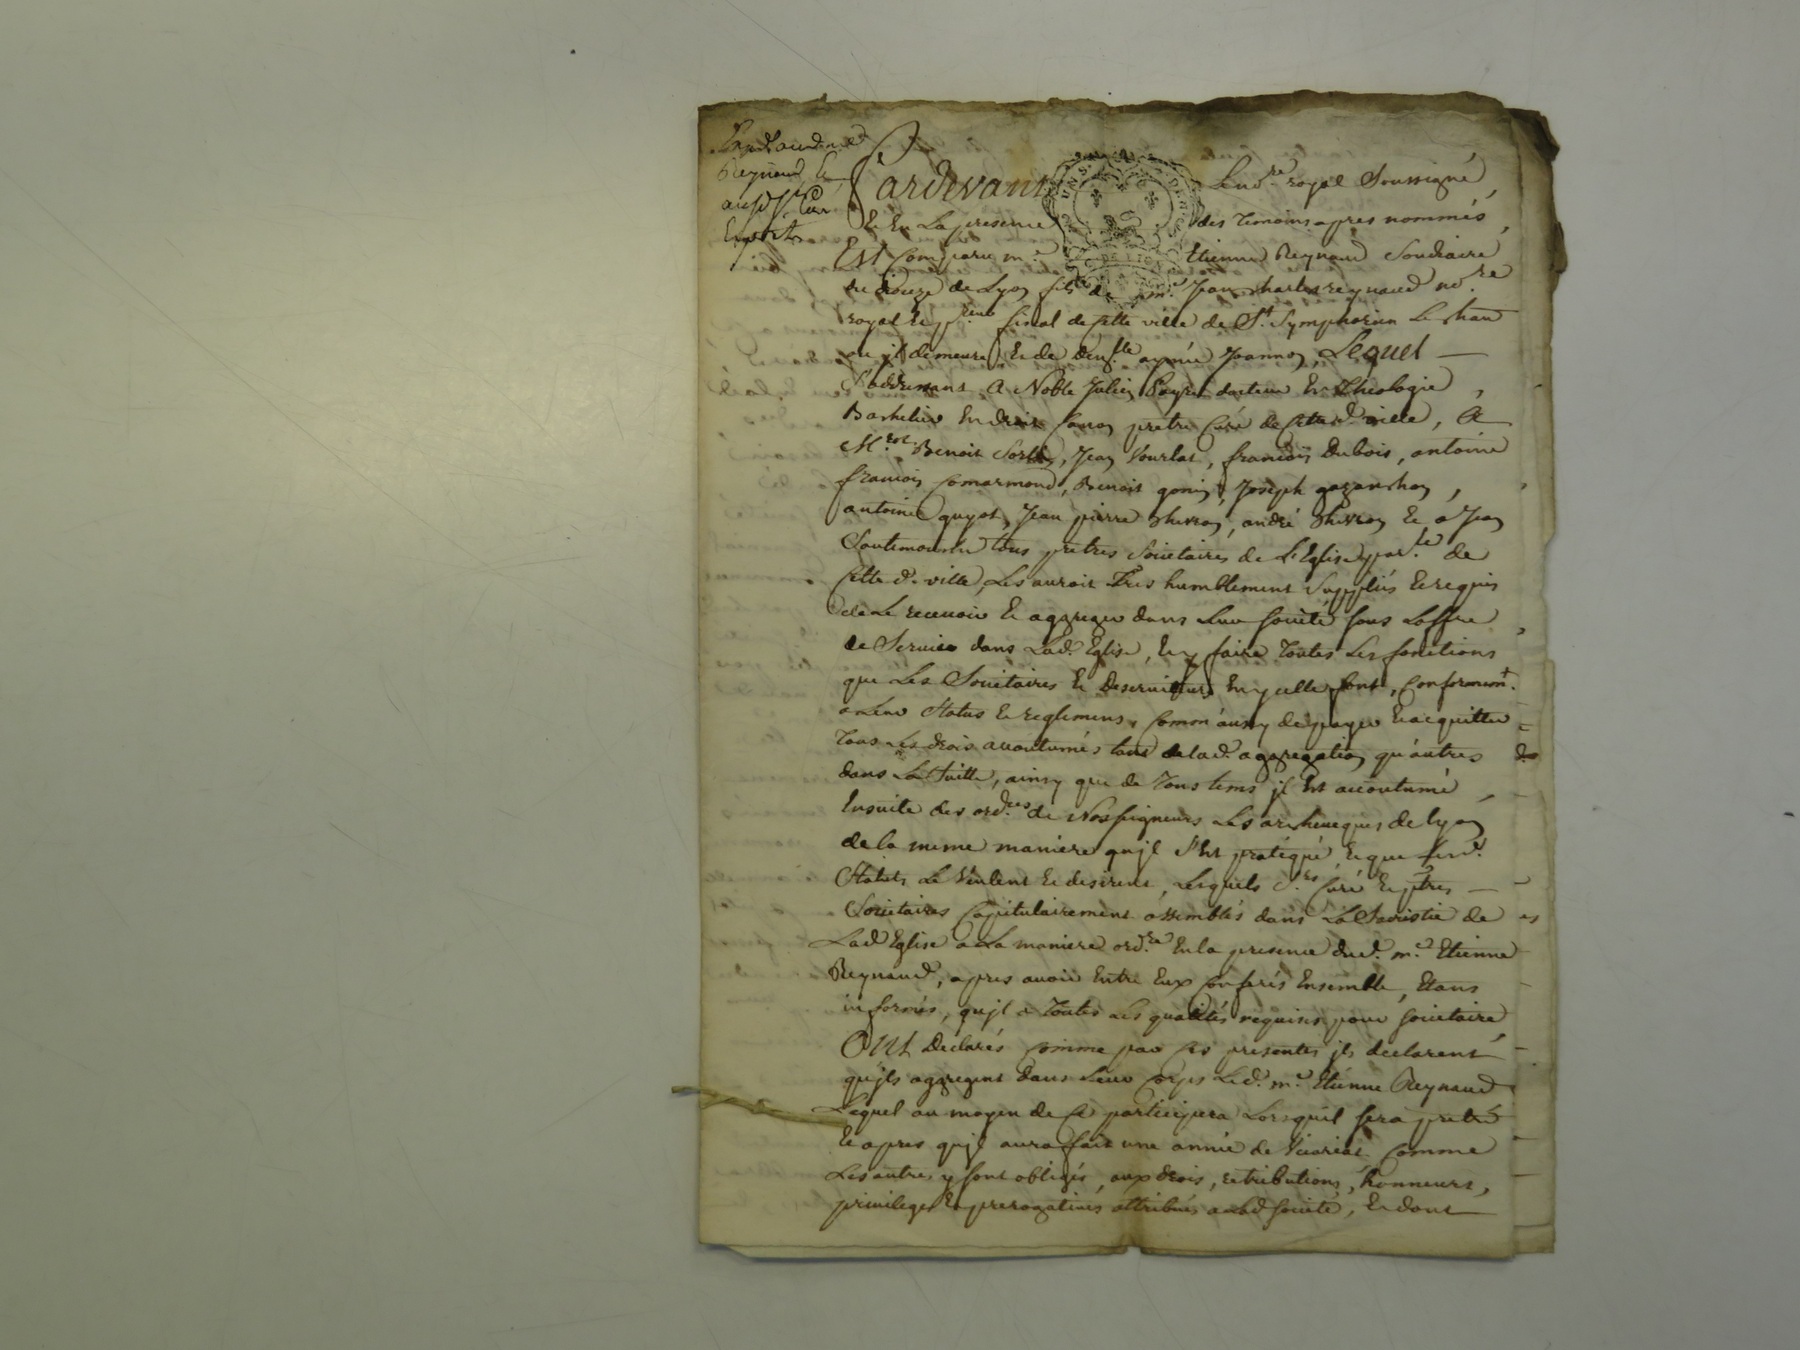 Reynaud
Pardevant Le no.re royal Soussigné,
Et En La presence des temoins apres nommés,
Est comparu m.e Etienne Reynaud Soudiacre
du dioceze de Lyon fils de m.e Jean charles reynaud no.re
royal et fiscal de cette ville de St. Symphorien Le chau
ou jl demeure, Et de dem.lle aymée Joannon, Lequel
S'addressant A Noble Julien docteur En Theologie,
Bachelier En droit Canon prêtre Curé de cette d. ville, A
M.res Benoit, Jean Vourlat, francois Dubois, antoine
francois Comarmond, Benoit gonin, Joseph gazanchon,
antoine guyot, Jean pierre Chevron, andré Chevron Et a Jean
tous prêtres Societaires de L'Eglise par.le de
Cette d. ville, Les auroit Tres humblement Suppliés Et requis
de Le recevoir Et aggreger dans Leur Societé sous L'offre
de Service dans Lad. Eglise, Et y faire Toutes Les fonctions
que Les Societaires Et Deserviteurs En ycelle font, Conformem.t
a Leur Status Et reglemens, Comm'aussy de payer Et acquitter
Tous Les drois accoutumés tant de lad. aggregation qu'autres
dans La Suitte, ainsy que de Tous tems jl Est accoutumé,
Ensuite des ord.ces de Nosseigneurs Les archeveques de Lyon
de la meme maniere qujl S'est pratiqué, Et que Lesd.
Statuts Le Veulent Et desirent, Lesquels S.rs Curé Et ptres
Societaires Capitulairement assemblés dans La Sacristie de
Lad. Eglise a La maniere ord.re En la presence dud. m.e Etienne
Reynaud, apres avoir Entre Eux Conferés Ensemble, Etans
informés, qujl a Toutes Les qualités requises pour Societaire,
Ont Declarés Comme par Ces presentes jls declarent
qujls aggregent dans Leur Corps Led. m.e Etienne Reynaud
Lequel au moyen de Ce participera Lorsquil sera prêtre
Et apres qujl aura fait une année de Vicariat Comme
Les autres y sont obligés, aux drois, retributions, honneurs,
privileges Et prerogatives attribués a Lad. Societé, Et dont